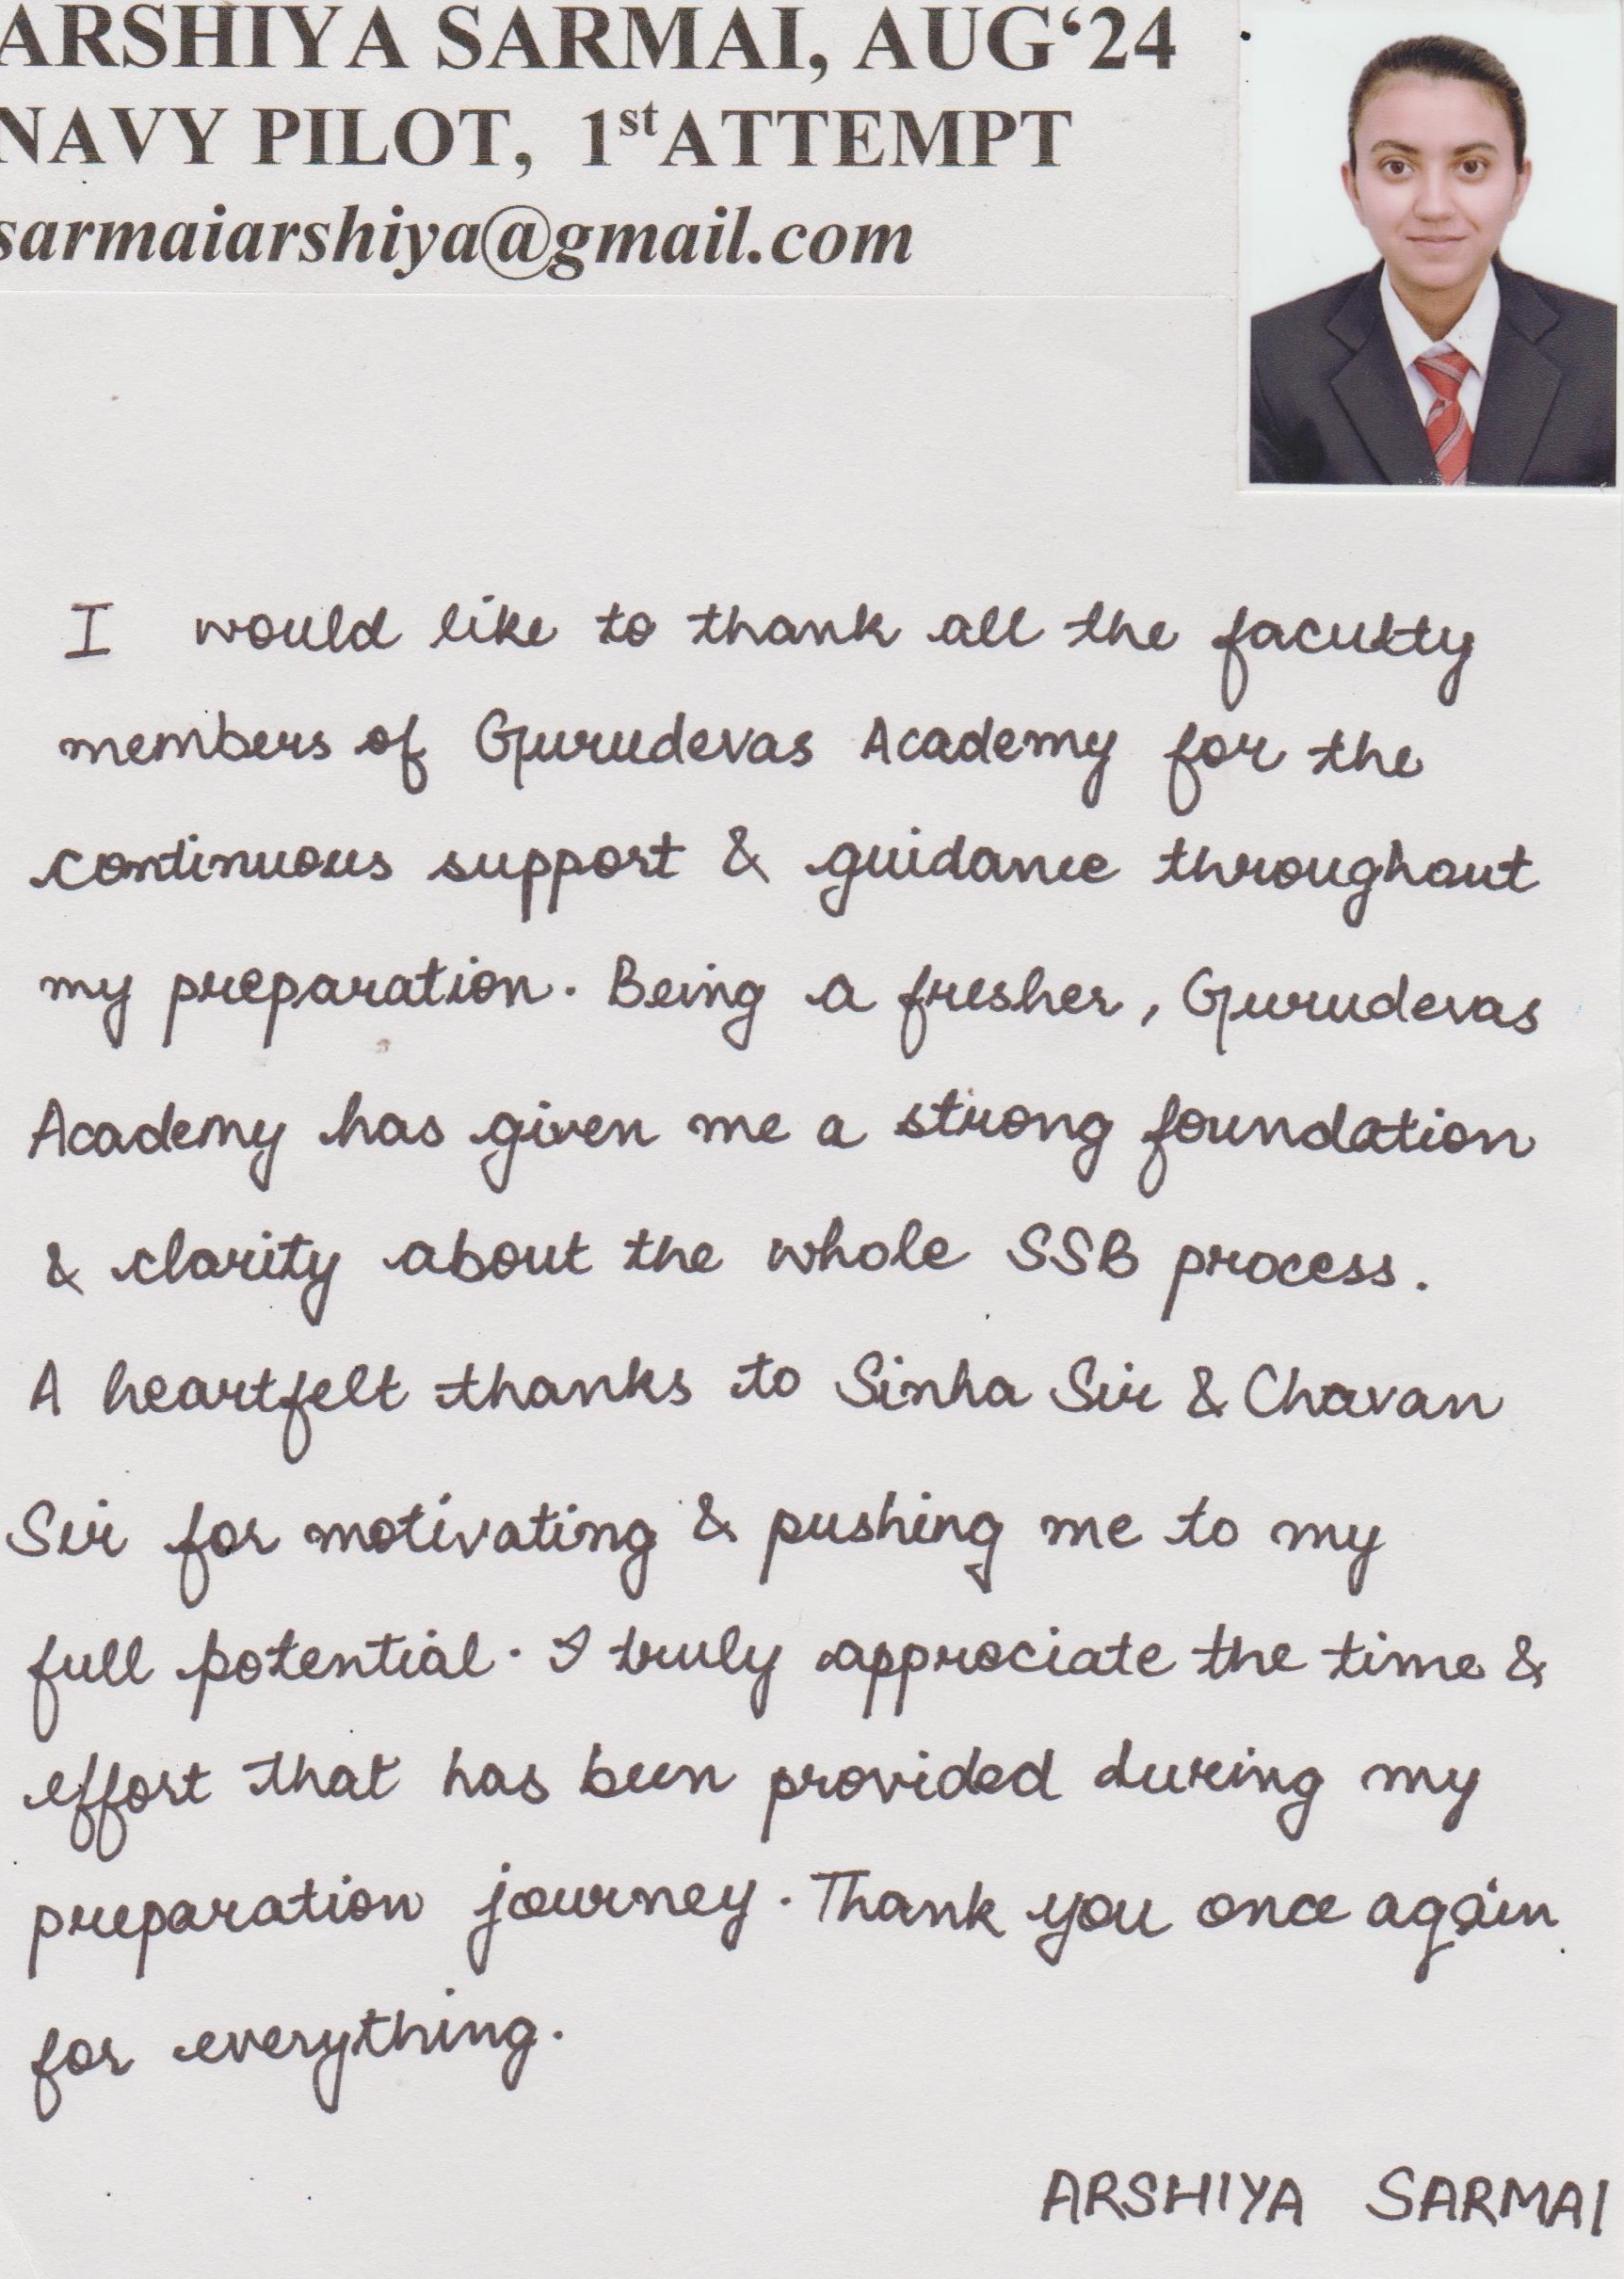 ARSHIYA SARMAI, AUG‘24
NAVY PILOT, 1st ATTEMPT
sarmaiarshiya@gmail.com
I would like to thank all the faculty
members of Gurudevas Academy for the
continuous support & guidance throughout
my preparation. Being a fresher, Gurudevas
Academy has given me a strong foundation
& clarity about the whole SSB process.
A heartfelt thanks to Sinha Sir & Chavan
Sir for motivating & pushing me to my
full potential. I truly approciate the time &
effort that has been provided during my
preparation journey. Thank you once again
for everything.
ARSHIYA SARMAI